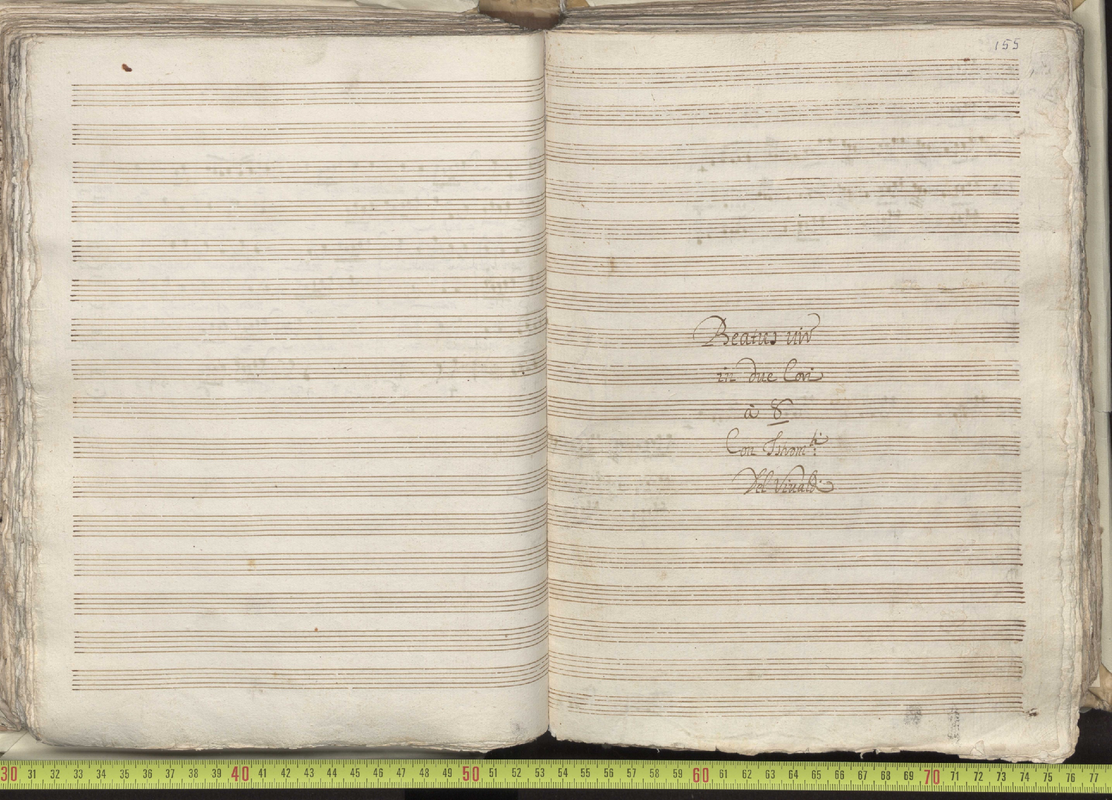 155
Beatus vir
in due Cori
à 8
Con Istromti:
Del Vivaldi
30 31 32 33 34 35 36 37 38 39 40 41 42 43 44 45 46 47 48 49 50 51 52 53 54 55 56 57 58 59 60 61 62 63 64 65 66 67 68 69 70 71 72 73 74 75 76 77